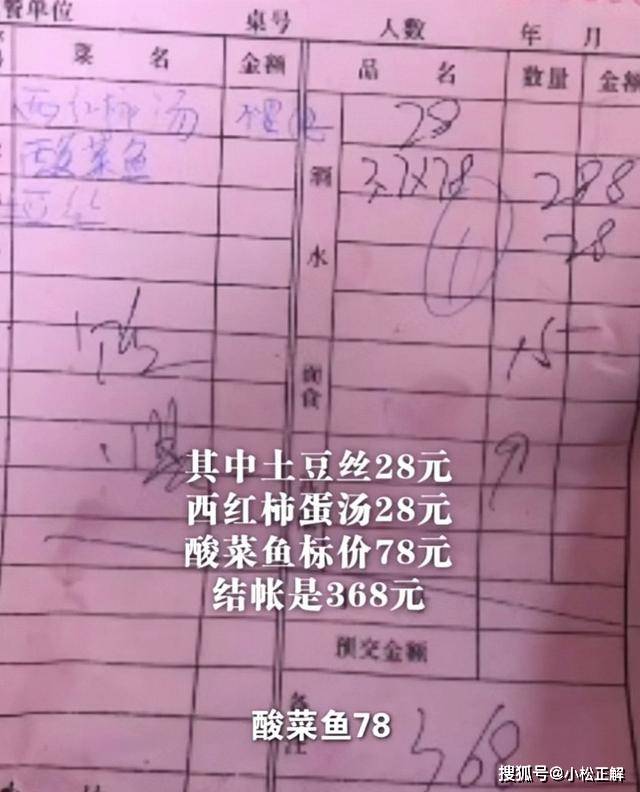 餐单位 桌号 人数 年 月
菜 名 金额 品 名 数量 金额
西红柿汤 28
酸菜鱼 3.7×78 288
豆丝 28
酒水
15
面食
其中土豆丝28元
西红柿蛋汤28元
酸菜鱼标价78元
结帐是368元
预交金额
备注
酸菜鱼78
368
搜狐号@小松正解